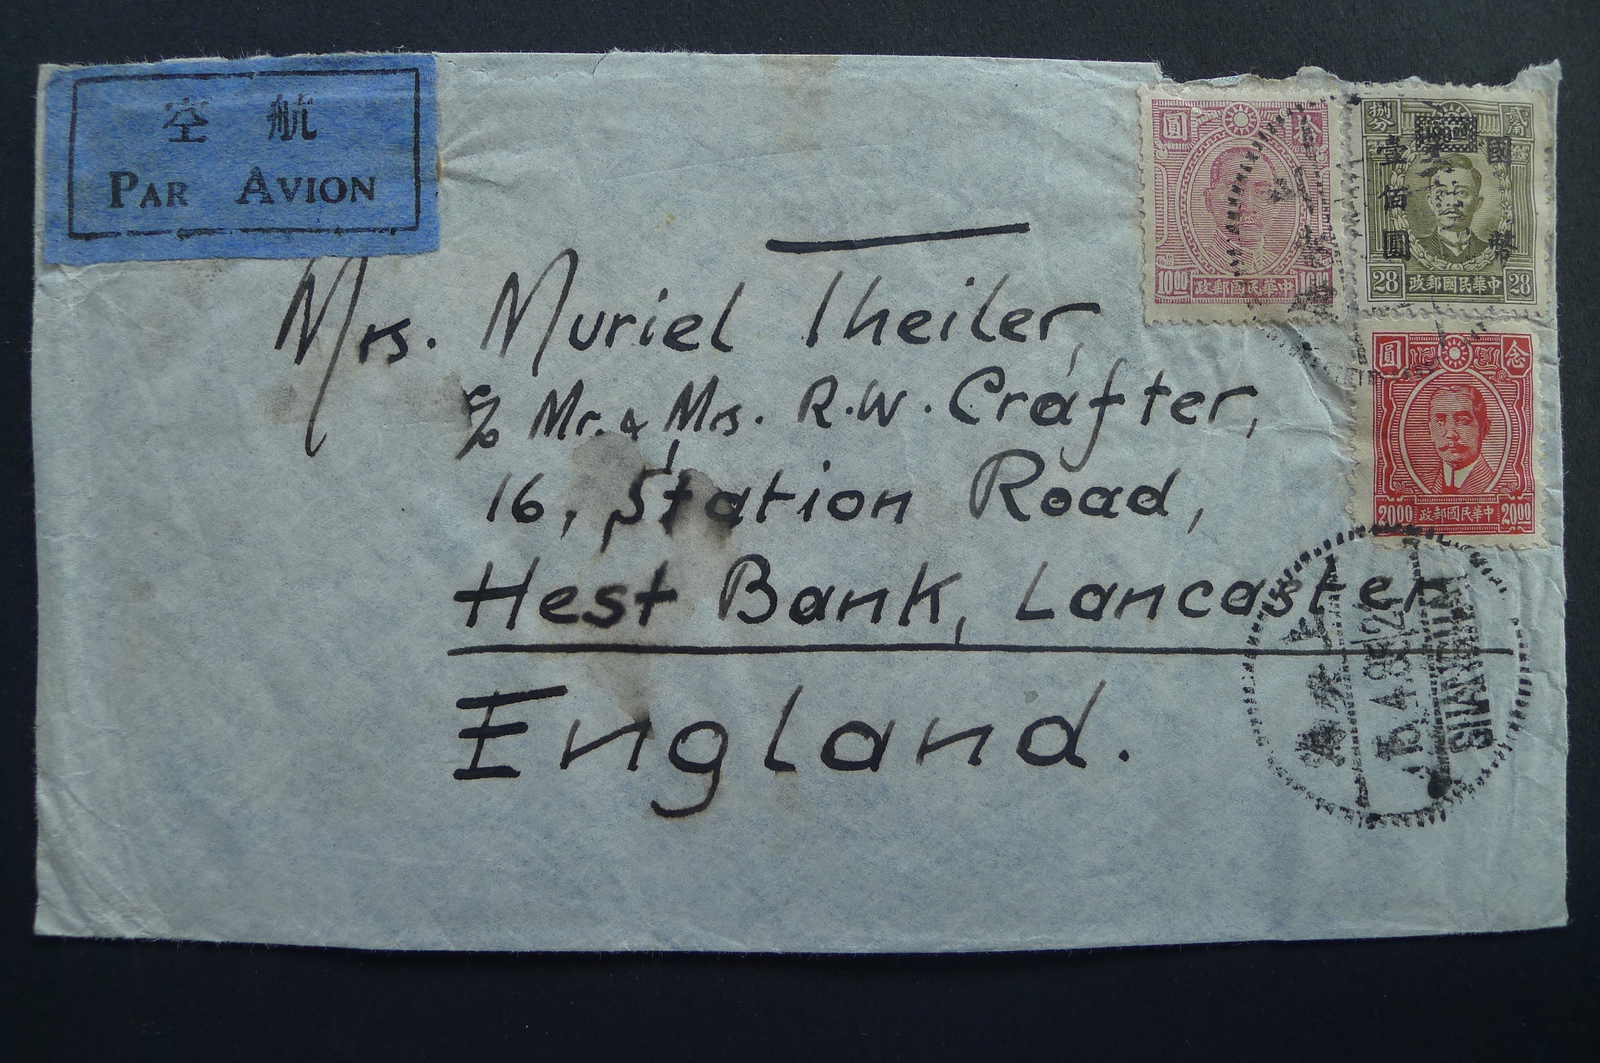 空 航
PAR AVION
圓 叁
10.00 政郵國民華中 10.00
捌分 貳角
國幣
壹佰圓
28 政郵國民華中 28
圓 念
2000 政郵國民華中 2000
Mrs. Muriel Theiler,
c/o Mr. & Mrs. R.W. Crafter,
16, Station Road,
Hest Bank, Lancaster
England.
上
15.4.35